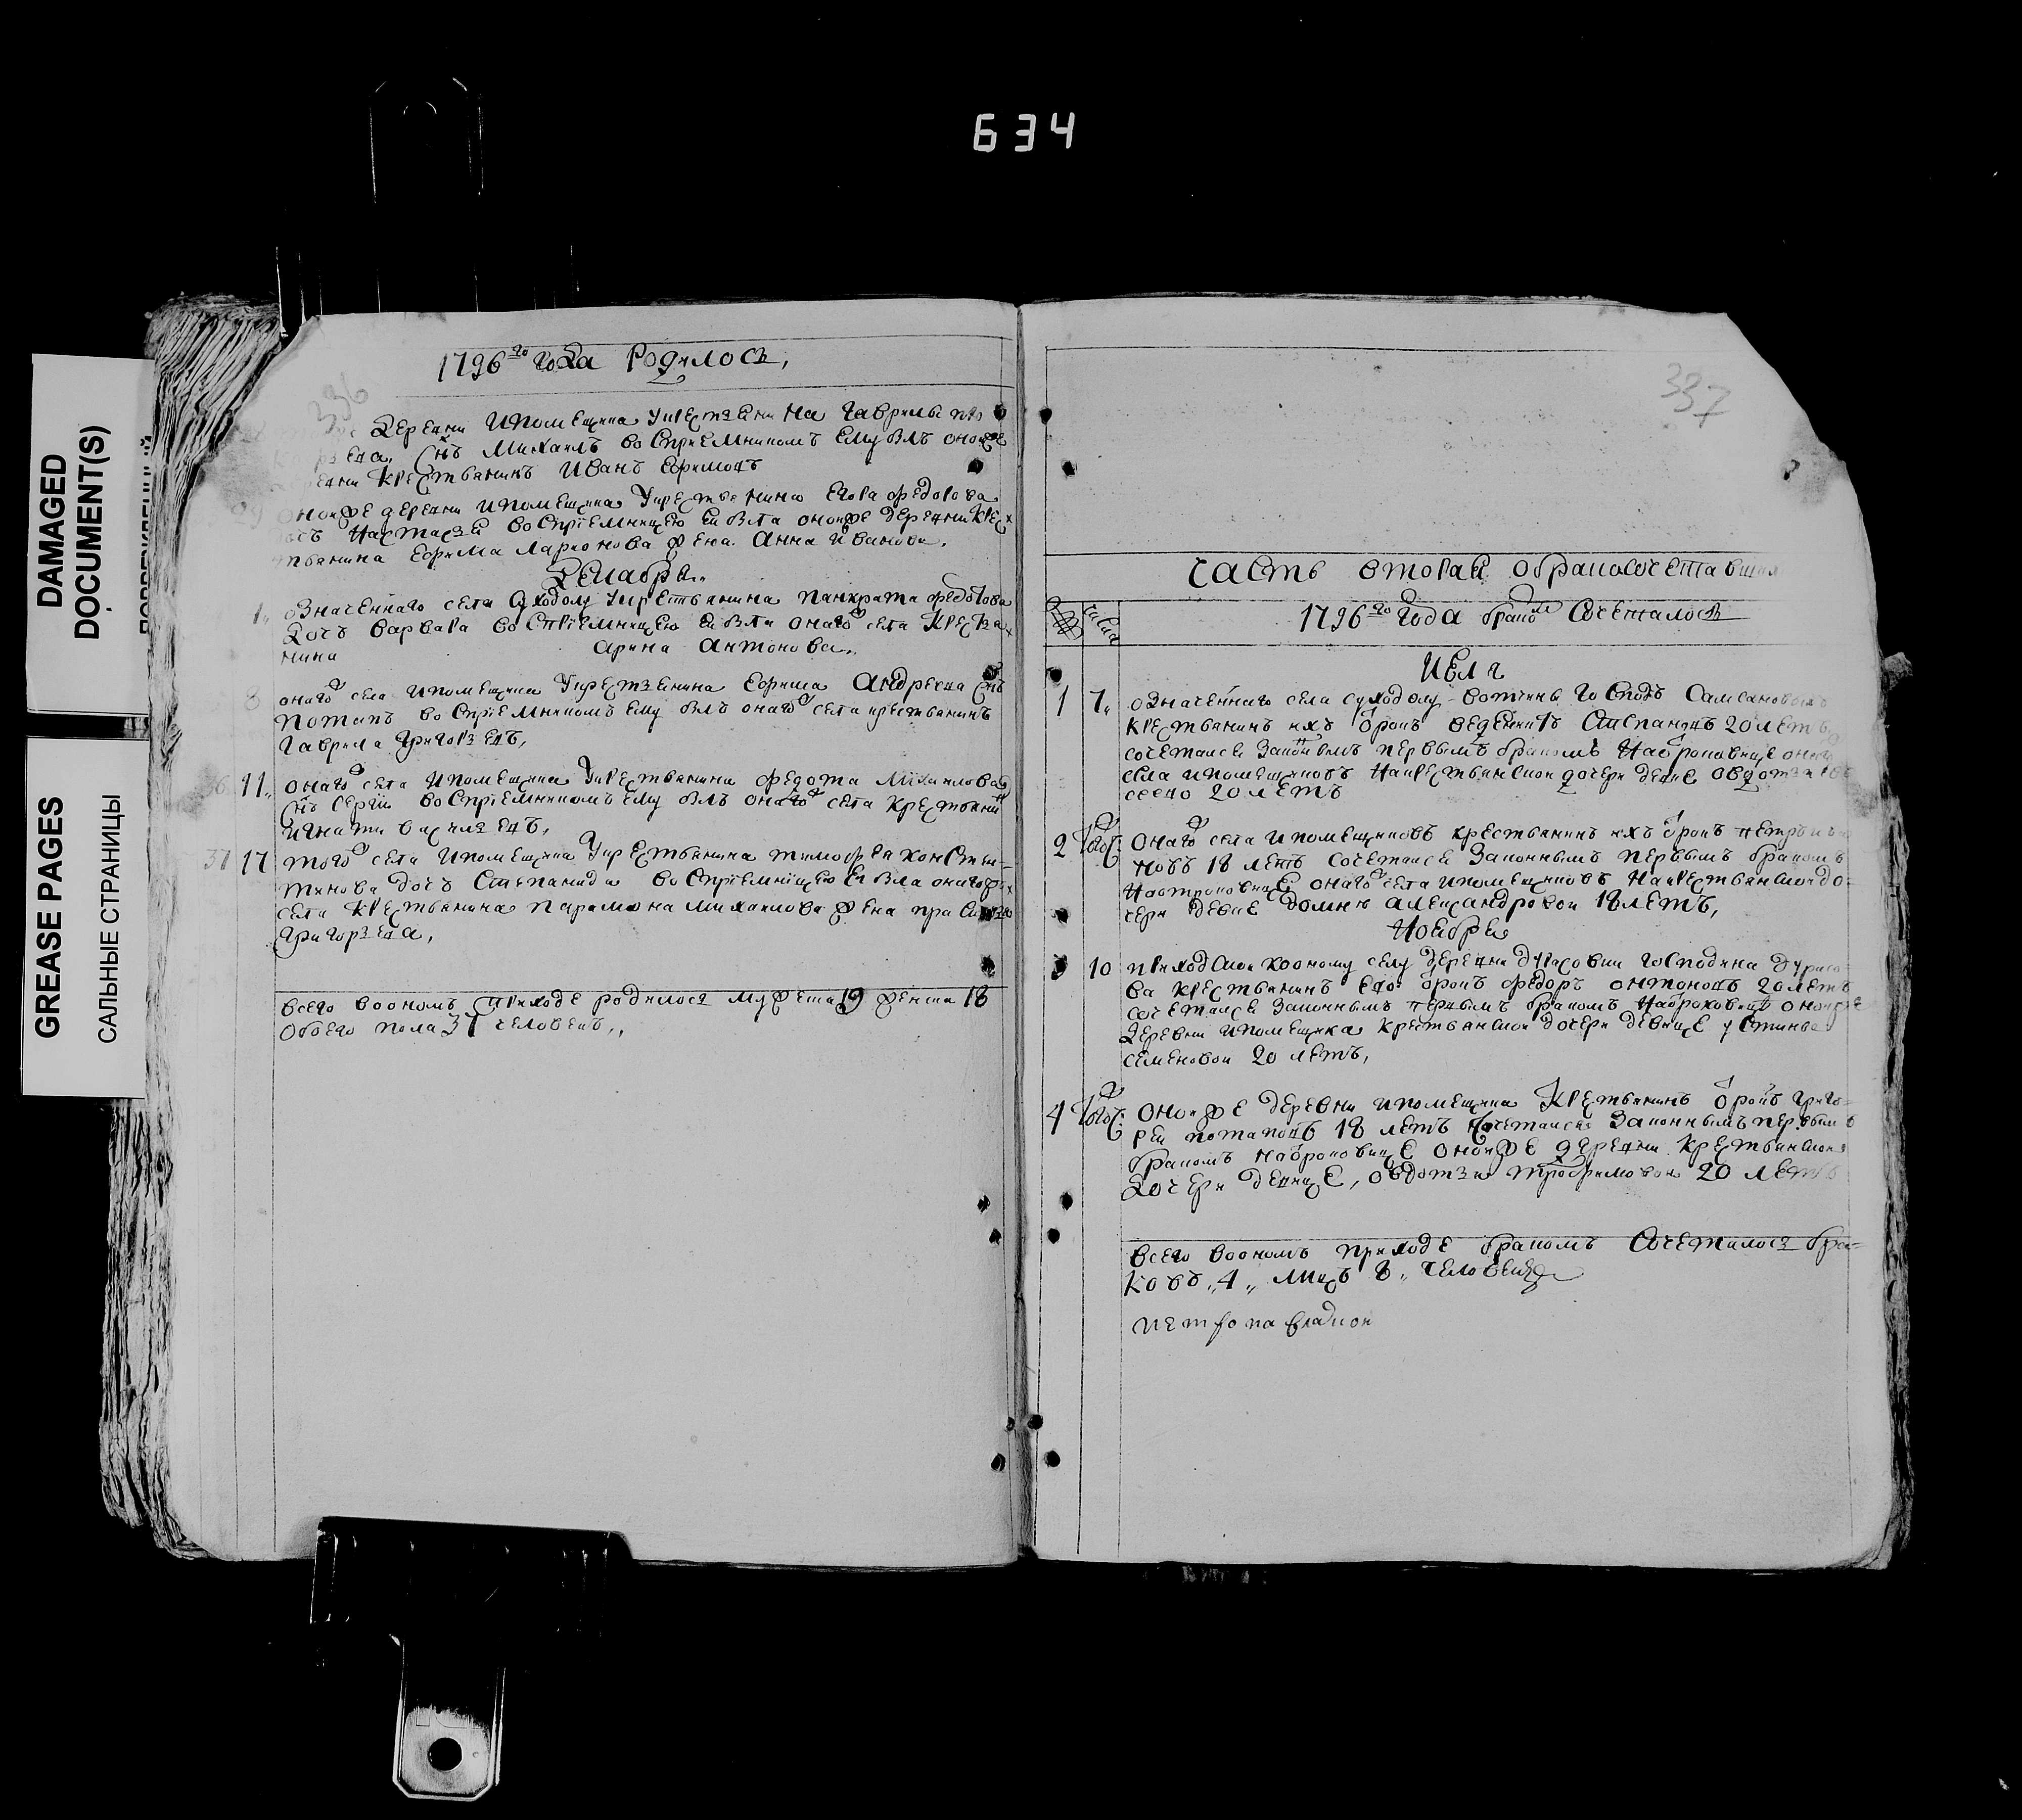 634
DAMAGED
DOCUMENT(S)
GREASE PAGES
САЛЬНЫЕ СТРАНИЦЫ
336
1796го года родилось,
деревни и помещика у крестьянина Гаврилы
снъ Михаилъ восприемникомъ ему былъ оной же
крестьянинъ Иванъ Ефимовъ
29 оной же деревни и помещика у крестьянина Егора Федорова
Настасья восприемницею ей была оной же деревни крес
тьянина Ефима Ларионова жена Анна Иванова.
Декабря.
1. означеннаго села Суходолу у крестьянина Панкрата Федотова
дочь Варвара восприемницею ей была онаго села крестья
нина Арина Антонова.
8 онаго села и помещика у крестьянина Ефима Андреева снъ
Потапъ восприемникомъ ему былъ онаго села крестьянинъ
Гаврила Григорьевъ,
36 11. онаго села и помещика у крестьянина Федота Михаилова
снъ Сергiй восприемникомъ ему былъ онаго села крестьянинъ
Игнати Васильевъ,
37 17 того села и помещика у крестьянина Тимофея Констан-
тинова дочь Степанида восприемницею ей была онаго ж
села крестьянина Парамона Михаилова жена
Григорьева,
всего во ономъ приходе родилося мужеска 19 женска 18
обоего пола 37 человекъ,,
337
часть вторая о бракосочетавшихся
числа
1796го года бракомъ сочеталось
1 7. означеннаго села Суходолу вотчины господъ Самсоновыхъ
крестьянинъ ихъ отрокъ Степановъ 20 летъ
сочетался законнымъ первымъ бракомъ на отроковице онаго
села и помещиковъ на крестьянской дочери девице Овдотьи
20 летъ
2 тогож: онаго села и помещиковъ крестьянинъ ихъ отрокъ Петръ
новъ 18 летъ сочетался законнымъ первымъ бракомъ
на отроковице онаго села и помещиковъ на крестьянской до-
чери девице Домне Александровой 18 летъ,
Ноября
3 10 приходской ко оному селу деревни Дурасовки господина Дурасо-
ва крестьянинъ ево отрокъ Федоръ Онтоновъ 20 летъ
сочетался законнымъ первымъ бракомъ на отроковице оной же
деревни и помещика крестьянской дочери девице Устинье
Семеновой 20 летъ,
4 тогож: оной же деревни и помещика крестьянинъ отрокъ Григо-
рей Потаповъ 18 летъ сочетался законнымъ первымъ
бракомъ на отроковице оной же деревни крестьянской
дочери девице, Овдотьи Трофимовой 20 летъ
всего во ономъ приходе бракомъ сочеталося бра-
ковъ „4„ лицъ 8„ человекъ